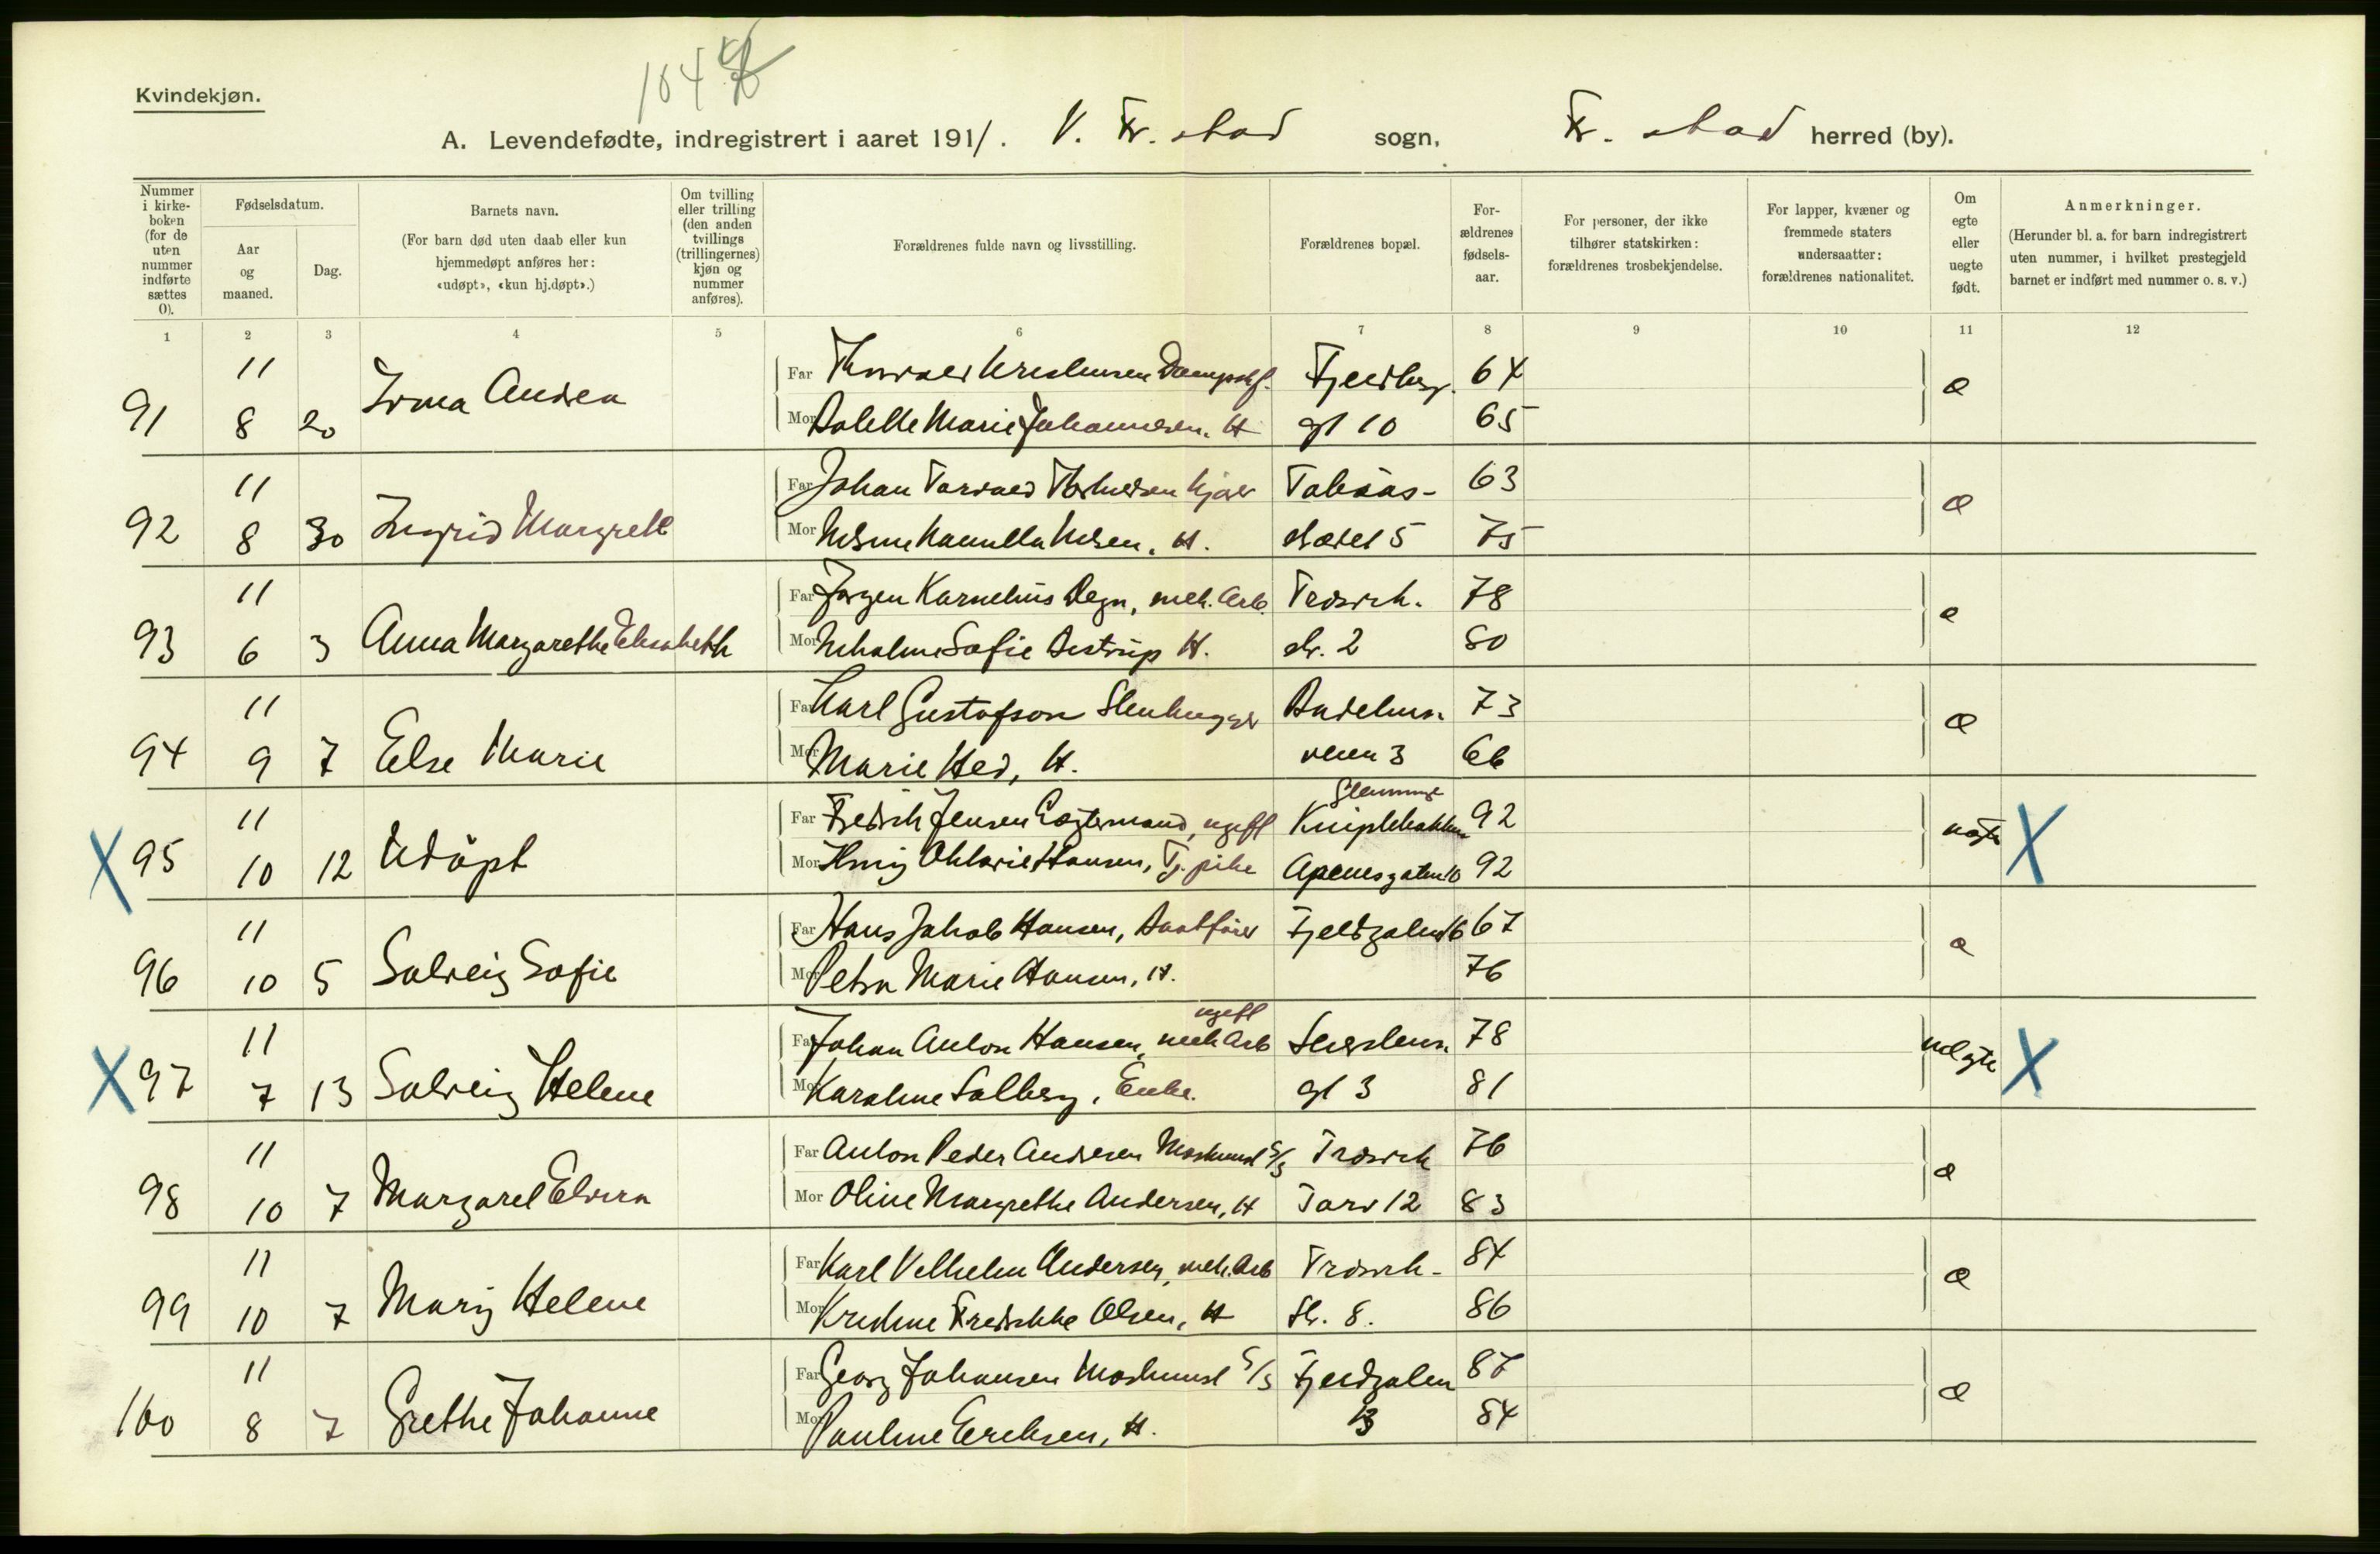 Kvindekjøn.
104
A. Levendefødte, indregistrert i aaret 1911. V. Fr. stad sogn, Fr. stad herred (by).
Nummer i kirke-boken (for de uten nummer indførte sættes 0).
Fødselsdatum.
Aar og maaned.
Dag.
Barnets navn.
(For barn død uten daab eller kun hjemmedøpt anføres her: «udøpt», «kun hj.døpt».)
Om tvilling eller trilling (den anden tvillings (trillingernes) kjøn og nummer anføres).
Forældrenes fulde navn og livsstilling.
Forældrenes bopæl.
For-ældrenes fødsels-aar.
For personer, der ikke tilhører statskirken: forældrenes trosbekjendelse.
For lapper, kvæner og fremmede staters undersaatter: forældrenes nationalitet.
Om egte eller uegte født.
Anmerkninger.
(Herunder bl. a. for barn indregistrert uten nummer, i hvilket prestegjeld barnet er indført med nummer o. s. v.)
1 2 3 4 5 6 7 8 9 10 11 12
11 Far 64
91 8 20 Irma Andrea Mor Marie Johannesen. H gt 10 65
11 Far Johan 63
92 8 30 Ingrid Margrete Mor H. 5 75
11 Far Jørgen Kornelius Degn, mek. Arb. 78
93 6 3 Anna Margarethe Elisabeth Mor Sofie Astrup H. str. 2 80
11 Far Karl Gustafson Stenhugger 73
94 9 7 Else Marie Mor Marie Hed, H. veien 3 66
11 Far Fredrik Jensen ugift Glemminge Kniplebakken 92 uegte X
X 95 10 12 Udöpt Mor Hansen, Tj. pike Apenesgaten 10 92
11 Far Hans Jakob Hansen, Baatfører Fjeldgaten 16 67
96 10 5 Solveig Sofie Mor Petra Marie Hansen, H. 76
11 Far Johan Anton Hansen, mek Arb ugift 78 uegte X
X 97 7 13 Solveig Helene Mor Karoline Solberg, Enke. gt 3 81
11 Far Anton Peder Andresen Maskinist S/S 76
98 10 7 Margaret Elvira Mor Oline Margrethe Andersen, H Torv 12 83
11 Far Karl Vilhelm Andersen, mek. Arb 84
99 10 7 Mary Helene Mor Kristine Fredrikke Olsen, H St. 8. 86
11 Far Georg Johansen Maskinist S/S Fjeldgaten 87
100 8 7 Grethe Johanne Mor Pauline Eriksen, H. 13 84